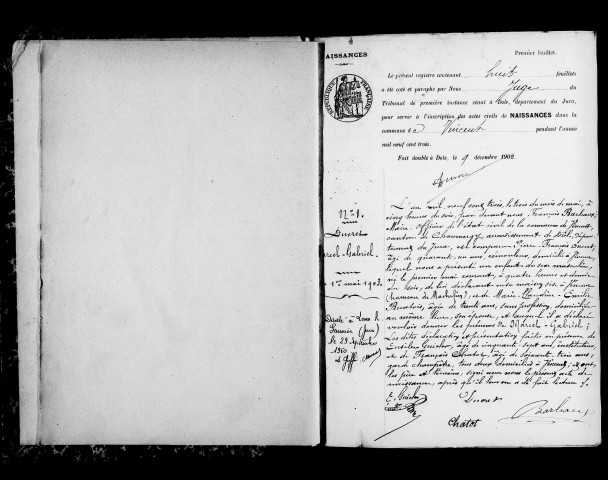 NAISSANCES
Premier feuillet.
Le présent registre contenant huit feuillets
a été coté et paraphé par Nous Juge du
Tribunal de première instance séant à Dole, département du Jura,
pour servir à l'inscription des actes civils de NAISSANCES dans la
commune de Vincent pendant l'année
mil neuf cent trois.
Fait double à Dole, le 9 décembre 1902.
RÉPUBLIQUE FRANÇAISE
N° 1.
Ducret
Marcel-Gabriel.
1er mai 1903.
Décédé à Lons le
Saunier (Jura)
le 29 Septembre
1960
L'an mil neuf cent trois, le trois du mois de mai, à
cinq heures du soir, par devant nous, François Barbaux,
Maire, Officier de l'état civil de la commune de Vincent,
canton de Chaumergy, arrondissement de Dole, dépar-
tement du Jura, est comparu Pierre François Ducret,
âgé de quarante un ans, domicilié à
lequel nous a présenté un enfant du sexe masculin,
né le premier mai courant, à quatre heures et demie
du soir, de lui déclarant en sa maison sise à
(hameau de ), et de Marie Claudine Emilie
âgée de trente ans, sans profession, domiciliée
au même lieu, son épouse, et auquel il a déclaré
vouloir donner les prénoms de Marcel-Gabriel;
Les dites déclaration et présentation faites en présence de
âgé de cinquante sept ans, instituteur
et de François Chatot, âgé de soixante trois ans,
garde champêtre, tous deux domiciliés à Vincent; et ont,
les père et témoins, signé avec nous le présent acte de
naissance, après qu'il leur en a été fait lecture.
Ducret
Chatot
Barbaux